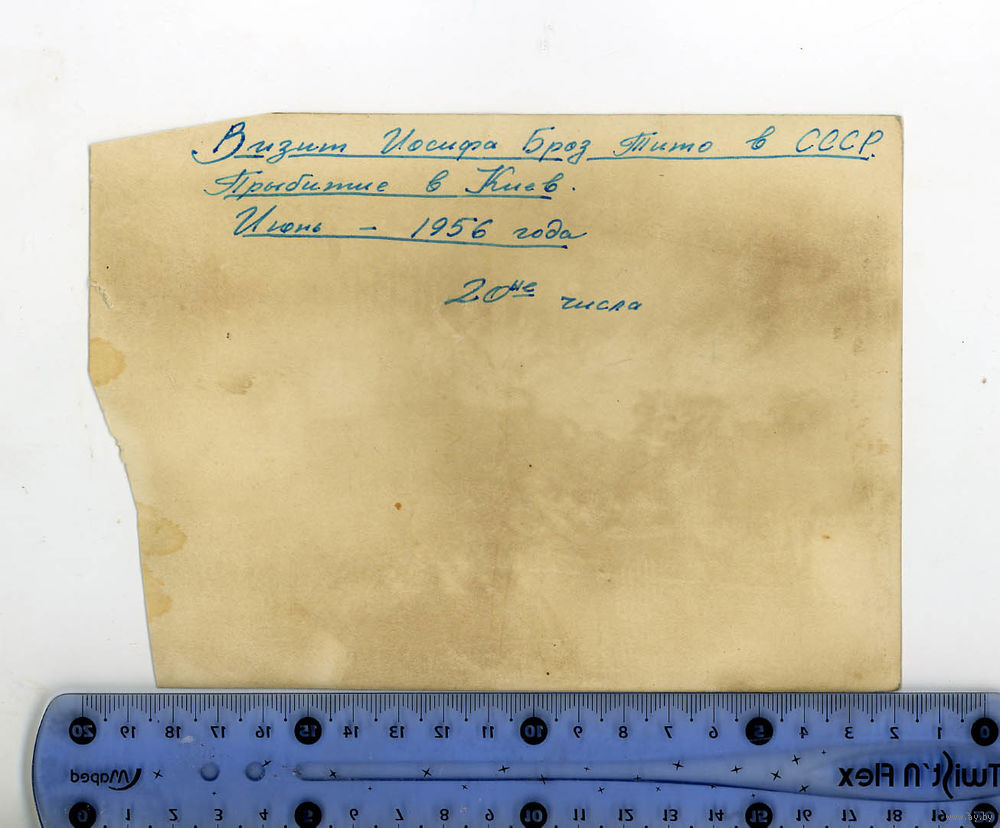 Визит Иосифа Броз Тито в СССР.
Прыбитие в Киев.
Июнь - 1956 года
20ые числа
20 19 18 17 16 15 14 13 12 11 10 9 8 7 6 5 4 3 2 1 0
Maped
Twist'n Flex
0 1 2 3 4 5 6 7 8 9 10 11 12 13 14 15 16 17 18 19
www.ay.by